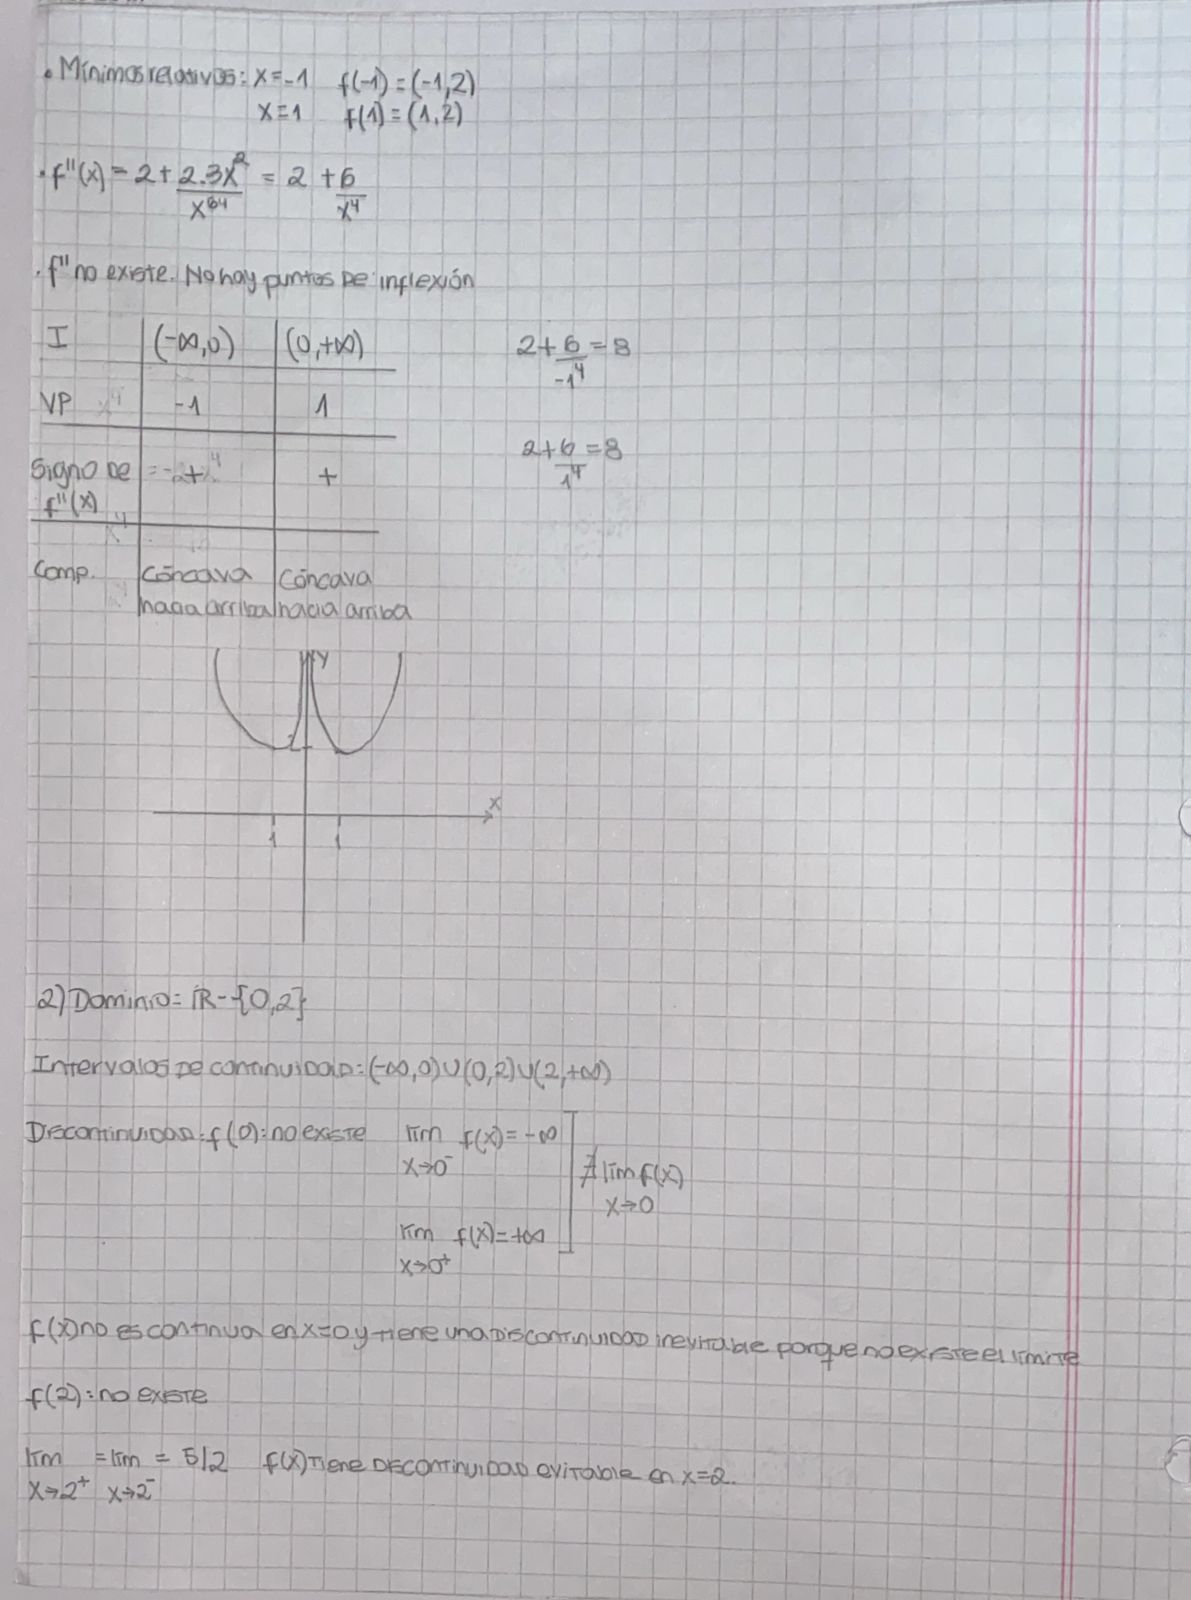 • Mínimos relativos: x=-1 f(-1)=(-1,2)
x=1 f(1)=(1,2)
• f''(x) = 2 + 2.3x² / x⁶⁴ = 2 + 6 / x⁴
. f'' no existe. No hay puntos de inflexión
I (-∞,0) (0,+∞) 2 + 6 / -1⁴ = 8
VP -1 1
2 + 6 / 1⁴ = 8
Signo de +
f''(x)
Comp. Cóncava Cóncava
hacia arriba hacia arriba
y
2
x
1 1
2) Dominio = ℝ - {0,2}
Intervalos de continuidad: (-∞,0)∪(0,2)∪(2,+∞)
Discontinuidad: f(0): no existe lím f(x) = -∞
x→0⁻
∄ lím f(x)
x→0
lím f(x) = +∞
x→0⁺
f(x) no es continua en x=0 y tiene una discontinuidad inevitable porque no existe el límite
f(2): no existe
lím = lím = 5/2 f(x) tiene discontinuidad evitable en x=2.
x→2⁺ x→2⁻